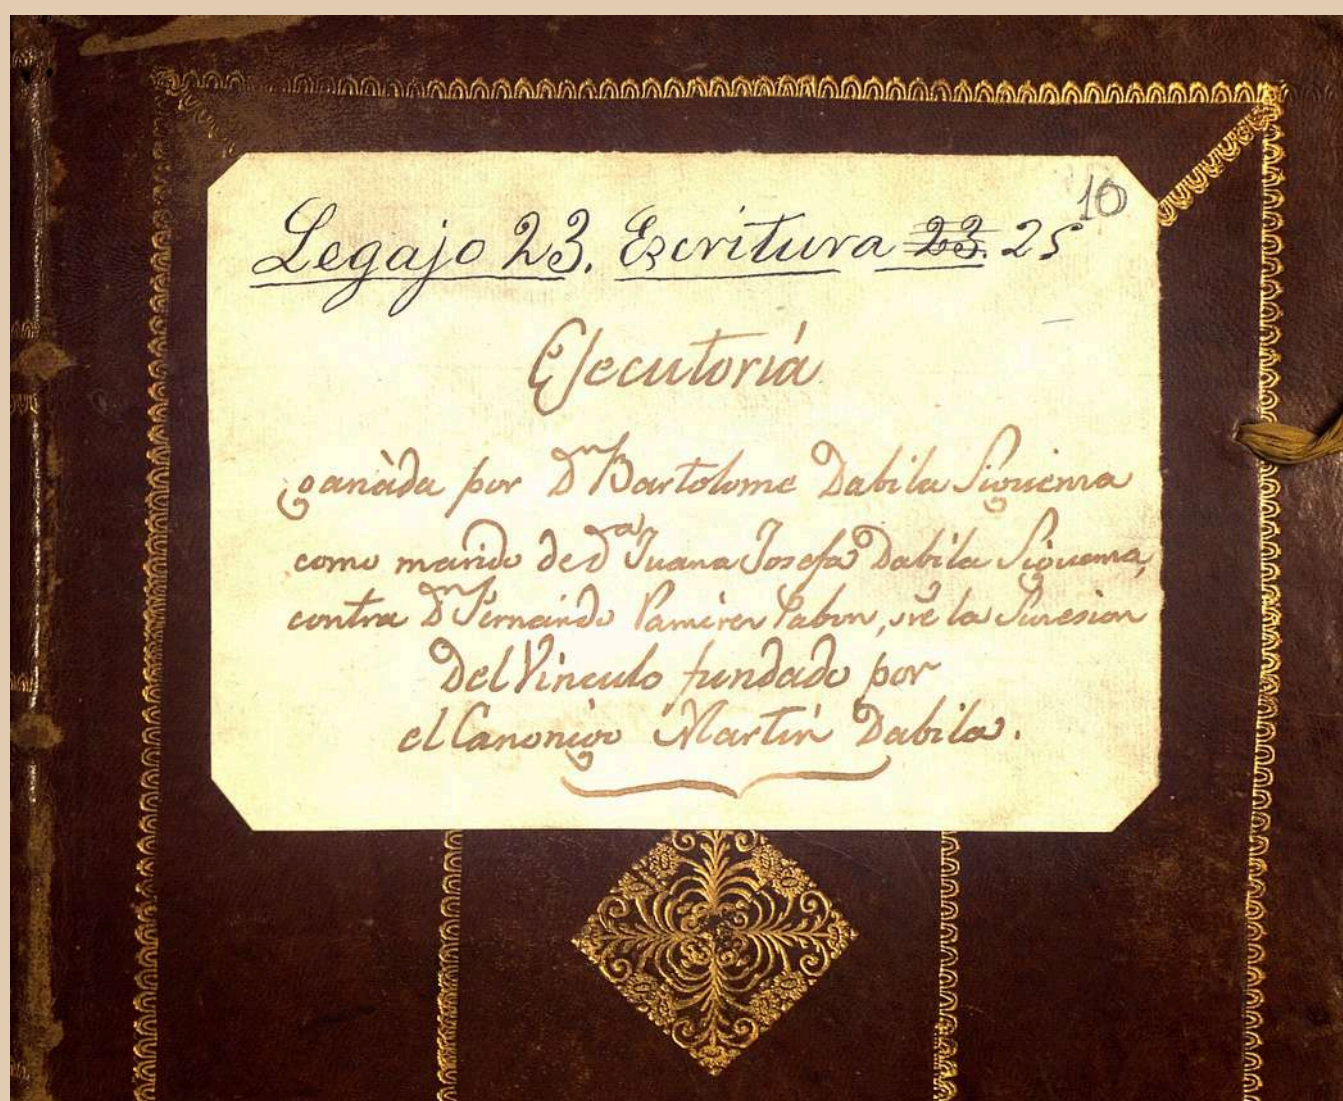 10
Legajo 23. Escritura 23. 25
Ejecutoria
ganàda por Dn Bartolome Dabila Siguenza
como marido de Da Juana Josefa Dabila Siguenza,
contra Dn Fernando Ramirez Pabon, sre la Sucesion
Del Vinculo fundado por
el Canonigo Martin Dabila.